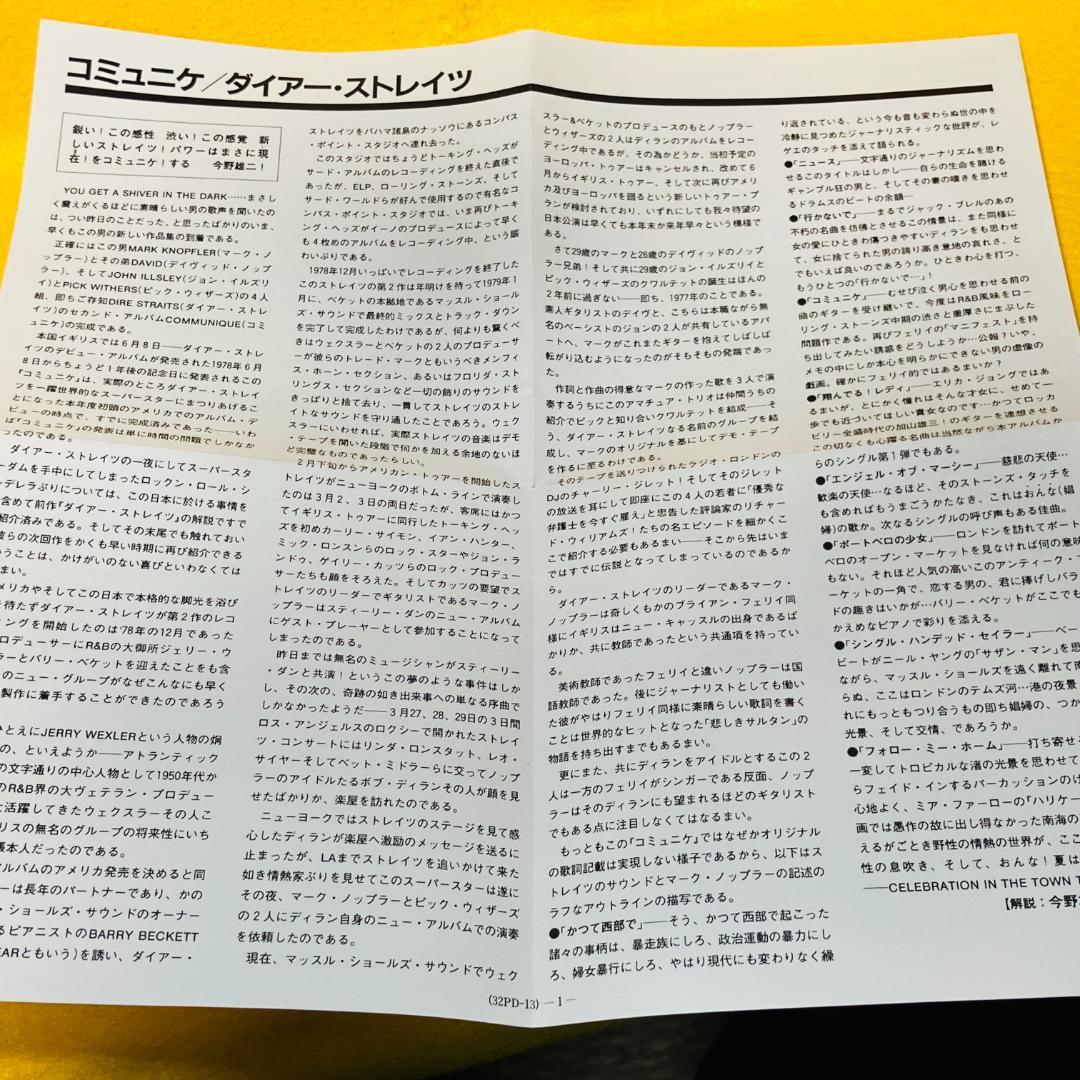 コミュニケ／ダイアー・ストレイツ
鋭い！この感性 渋い！この感覚 新
しいストレイツ！パワーはまさに現
在！をコミュニケ！する 今野雄二！
YOU GET A SHIVER IN THE DARK……まさし
く震えがくるほどに素晴らしい男の歌声を聞いたの
は、つい昨日のことだった、と思ったばかりのいま、
早くもこの男の新しい作品集の到着である。
正確にはこの男MARK KNOPFLER(マーク・ノ
ップラー)とその弟DAVID(デイヴィッド・ノップ
ラー)、そしてJOHN ILLSLEY(ジョン・イルズリ
イ)とPiCK WITHERS(ピック・ウィザーズ)の4人
組、即ちご存知DIRE STRAITS(ダイアー・ストレ
イツ)のセカンド・アルバムCOMMUNIQUE(コミ
ュニケ)の完成である。
本国イギリスでは6月8日――ダイアー・ストレ
イツのデビュー・アルバムが発売された1978年6月
8日からちょうど1年後の記念日に発表されるこの
『コミュニケ』は、実際のところダイアー・ストレイ
ツを一躍世界的なスーパースターにまつりあげるこ
とになった本年度初頭のアメリカでのアルバム・デ
ビューの時点で、すでに完成済みであった――いわ
ば『コミュニケ』の発表は単に時間の問題でしかなか
ったのである。
ダイアー・ストレイツの一夜にしてスーパースタ
ーダムを手中にしてしまったロックン・ロール・シ
ンデレラぶりについては、この日本に於ける事情を
含めて前作『ダイアー・ストレイツ』の解説ですで
紹介済みである。そしてその末尾でも触れておい
彼らの次回作をかくも早い時期に再び紹介できる
うことは、かけがいのない喜びといわなくては
まい。
メリカやそしてこの日本で本格的な脚光を浴び
を待たずダイアー・ストレイツが第2作のレコ
ングを開始したのは'78年の12月であった
ロデューサーにR&Bの大御所ジェリー・ウ
ラーとバリー・ベケットを迎えたことをも含
のニュー・グループがなぜこんなにも早く
製作に着手することができたのであろう
ひとえにJERRY WEXLERという人物の炯
の、といえようか――アトランティック
の文字通りの中心人物として1950年代か
のR&B界の大ヴェテラン・プロデュー
大活躍してきたウェクスラーその人こ
リスの無名のグループの将来性にいち
張本人だったのである。
アルバムのアメリカ発売を決めると同
ーは長年のパートナーであり、かの
・ショールズ・サウンドのオーナー
るピアニストのBARRY BECKETT
EARともいう)を誘い、ダイアー・
ストレイツをバハマ諸島のナッソウにあるコンパス
・ポイント・スタジオへ連れ去った。
このスタジオではちょうどトーキング・ヘッズが
サード・アルバムのレコーディングを終えた直後で
あったが、ELP、ローリング・ストーンズ、そして
サード・ワールドらが好んで使用するので有名なコ
ンパス・ポイント・スタジオでは、いま再びトーキ
ング・ヘッズがイーノのプロデュースによって早く
も4枚めのアルバムをレコーディング中、という賑
わいぶりである。
1978年12月いっぱいでレコーディングを終了した
このストレイツの第2作は年明けを待って1979年1
月に、ベケットの本拠地であるマッスル・ショール
ズ・サウンドで最終的ミックスとトラック・ダウン
を完了して完成したわけであるが、何よりも驚くべ
きはウェクスラーとベケットの2人のプロデューサ
ーが彼らのトレード・マークともいうべきメンフィ
ス・ホーン・セクション、あるいはフロリダ・スト
リングス・セクションなど一切の飾りのサウンドを
きっぱりと捨て去り、一貫してストレイツのストレ
イトなサウンドを守り通したことであろう。ウェク
スラーにいわせれば、実際ストレイツの音楽はデモ
・テープを聞いた段階で何かを加える余地のないほ
ど完璧なものであったらしい。
2月下旬からアメリカン・トゥアーを開始したス
トレイツがニューヨークのボトム・ラインで演奏し
たのは3月2、3日の両日だったが、客席にはかつ
てイギリス・トゥアーに同行したトーキング・ヘッ
ズを初めカーリー・サイモン、イアン・ハンター、
ミック・ロンスンらのロック・スターやジョン・ラ
ンドゥ、ゲイリー・カッツらのロック・プロデュー
サーたちも顔をそろえた。そしてカッツの要望でス
トレイツのリーダーでギタリストであるマーク・ノ
ップラーはスティーリー・ダンのニュー・アルバム
にゲスト・プレーヤーとして参加することになって
しまったのである。
昨日までは無名のミュージシャンがスティーリー
・ダンと共演！というこの夢のような事件はしか
し、その次の、奇跡の如き出来事への単なる序曲で
しかなかったようだ――3月27、28、29日の3日間
ロス・アンジェルスのロクシーで開かれたストレイ
ツ・コンサートにはリンダ・ロンスタット、レオ・
サイヤーそしてベット・ミドラーらに交ってノップ
ラーのアイドルたるボブ・ディランその人が顔を見
せたばかりか、楽屋を訪れたのである。
ニューヨークではストレイツのステージを見て感
心したディランが楽屋へ激励のメッセージを送るに
止まったが、LAまでストレイツを追いかけて来た
如き情熱家ぶりを見せてこのスーパースターは遂に
その夜、マーク・ノップラーとピック・ウィザーズ
の2人にディラン自身のニュー・アルバムでの演奏
を依頼したのである。
現在、マッスル・ショールズ・サウンドでウェク
スラー&ベケットのプロデュースのもとノップラー
とウィザーズの2人はディランのアルバムをレコー
ディング中であるが、その為かどうか、当初予定の
ヨーロッパ・トゥアーはキャンセルされ、改めて6
月からイギリス・トゥアー、そして次に再びアメリ
カ及びヨーロッパを廻るという新しいトゥアー・プ
ランが検討されており、いずれにしても我々待望の
日本公演は早くても本年末か来年早々という模様で
ある。
さて29歳のマークと26歳のデイヴィドのノップ
ラー兄弟！そして共に29歳のジョン・イルズリイと
ピック・ウィザーズのクワルテットの誕生はほんの
2年前に過ぎない――即ち、1977年のことである。
素人ギタリストのデイヴと、こちらは本職ながら無
名のベーシストのジョンの2人が共有しているアパ
ートへ、マークがこれまたギターを抱えてしばしば
転がり込むようになったのがそもそもの発端であっ
た。
作詞と作曲の得意なマークの作った歌を3人で演
奏するうちにこのアマチュア・トリオは仲間うちの
紹介でピックと知り合いクワルテットを結成――そ
う、ダイアー・ストレイツなる名前のグループを結
成し、マークのオリジナルを基にしてデモ・テープ
を作るに至るわけである。
そのテープを送りつけられたラジオ・ロンドンの
DJのチャーリー・ジレット！そしてそのジレット
の放送を耳にして即座にこの4人の若者に“優秀な
弁護士を今すぐ雇え”と忠告した評論家のリチャー
ド・ウィリアムズ！たちの名エピソードを細かくこ
こで紹介する必要もあるまい――そこから先はいま
ではすでに伝説となってしまっているのであるか
ら。
ダイアー・ストレイツのリーダーであるマーク・
ノップラーは奇しくもかのブライアン・フェリイ同
様にイギリスはニュー・キャッスルの出身であるば
かりか、共に教師であったという共通項を持ってい
る。
美術教師であったフェリイと違いノップラーは国
語教師であった。後にジャーナリストとしても働い
た彼がやはりフェリイ同様に素晴らしい歌詞を書く
ことは世界的なヒットとなった「悲しきサルタン」の
物語を持ち出すまでもあるまい。
更にまた、共にディランをアイドルとするこの2
人は一方のフェリイがシンガーである反面、ノップ
ラーはそのディランにも望まれるほどのギタリスト
でもある点に注目しなくてはなるまい。
もっともこの「コミュニケ」ではなぜかオリジナル
の歌詞記載は実現しない様子であるから、以下はス
トレイツのサウンドとマーク・ノップラーの記述の
ラフなアウトラインの描写である。
●「かつて西部で」――そう、かつて西部で起こった
諸々の事柄は、暴走族にしろ、政治運動の暴力にし
ろ、婦女暴行にしろ、やはり現代にも変わりなく繰
り返されている、という今も昔も変わらぬ世の中を
冷静に見つめたジャーナリスティックな批評が、レ
ゲエのタッチを添えて語られる。
●「ニュース」――文字通りのジャーナリズムを思わ
せるこのタイトルはしかし――自らの生命を賭ける
ギャンブル狂の男と、そしてその妻の嘆きを思わせ
るドラムスのビートの余韻…
●「行かないで」――まるでジャック・ブレルのあの
不朽の名曲を彷彿とさせるこの情景は、また同様に
女の愛にひときわ傷つきやすいディランをも思わせ
て、女に捨てられた男の誇り高き意地の哀れさ、と
でもいえば良いのであろうか。ひときわ心を打つ、
もうひとつの「行かないで…」！
●「コミュニケ」――むせび泣く男心を思わせる前の
曲のギターを受け継いで、今度はR&B風味をロー
リング・ストーンズ中期の渋さと重厚さにまぶした
問題作である。再びフェリイの「マニフェスト」を持
ち出してみたい誘惑をどうしようか…公報？いや、
メモの中にしか本心を明らかにできない男の虚像の
戯画。確かにフェリイ的ではあるまいか？
●「翔んでる！レディ」――エリカ・ジョングではあ
るまいが、とにかく憧れはそんな才女に、せめて一
歩でも近ついてほしい貴女なのです…かつてロッカ
ビリー全盛時代の加山雄三！のギターを連想させる
この切なくも心躍る名曲は当然ながら本アルバムか
らのシングル第1弾でもある。
●「エンジェル・オブ・マーシー」――慈悲の天使…
歓楽の天使…なるほど、そのストーンズ・タッチを
も含めればもうまごうかたなき、これはおんな(娼
婦)の歌か。次なるシングルの呼び声もある佳曲。
●「ポートベロの少女」――ロンドンを訪れてポート
ベロのオープン・マーケットを見なければ何の意味
もない。それほど人気の高いこのアンティーク・マ
ーケットの一角で、恋する男の、君に捧げしバラ
ドの趣きはいかが…バリー・ベケットがここでも
かえめなピアノで彩りを添える。
●「シングル・ハンデッド・セイラー」――ベー
ビートがニール・ヤングの「サザン・マン」を思
ながら、マッスル・ショールズを遠く離れて南
らぬ、ここはロンドンのテムズ河…港の夜景
れにもっともつり合うもの即ち娼婦の、つか
光景、そして交情、であろうか。
●「フォロー・ミー・ホーム」――打ち寄せ
一変してトロピカルな渚の光景を思わせて
らフェイド・インするパーカッションのけ
心地よく、ミア・ファーローの「ハリケー
画では愚作の故に出し得なかった南海の
えるがごとき野性の情熱の世界が、ここ
性の息吹き、そして、おんな！夏は
――CELEBRATION IN THE TOWN T
[解説：今野
(32PD-13) ―1―